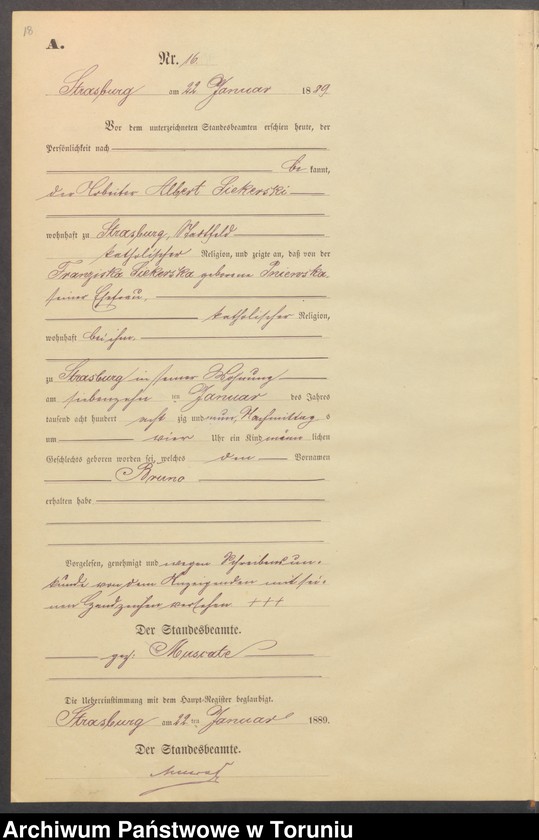 18.
A.
Nr. 16
Strasburg am 22 Januar 1889
Vor dem unterzeichneten Standesbeamten erschien heute, der
Persönlichkeit nach
be kannt,
der Arbeiter Albert Siekerski
wohnhaft zu Strasburg, Stadtfeld
katholischer Religion, und zeigte an, daß von der
Franziska Siekerska geborene
seiner Ehefrau,
katholischer Religion,
wohnhaft bei ihm,
zu Strasburg in seiner Wohnung
am siebenzehn ten Januar des Jahres
tausend acht hundert acht zig und neun, Nachmittag s
um vier Uhr ein Kind männ lichen
Geschlechts geboren worden sei, welches den Vornamen
Bruno
erhalten habe
Vorgelesen, genehmigt und wegen Schreibensun-
kunde von dem Anzeigenden mit sei-
nem Handzeichen versehen +++
Der Standesbeamte.
gez: Muscate
Die Uebereinstimmung mit dem Haupt-Register beglaubigt.
Strasburg am 22 ten Januar 1889.
Der Standesbeamte.
Archiwum Państwowe w Toruniu